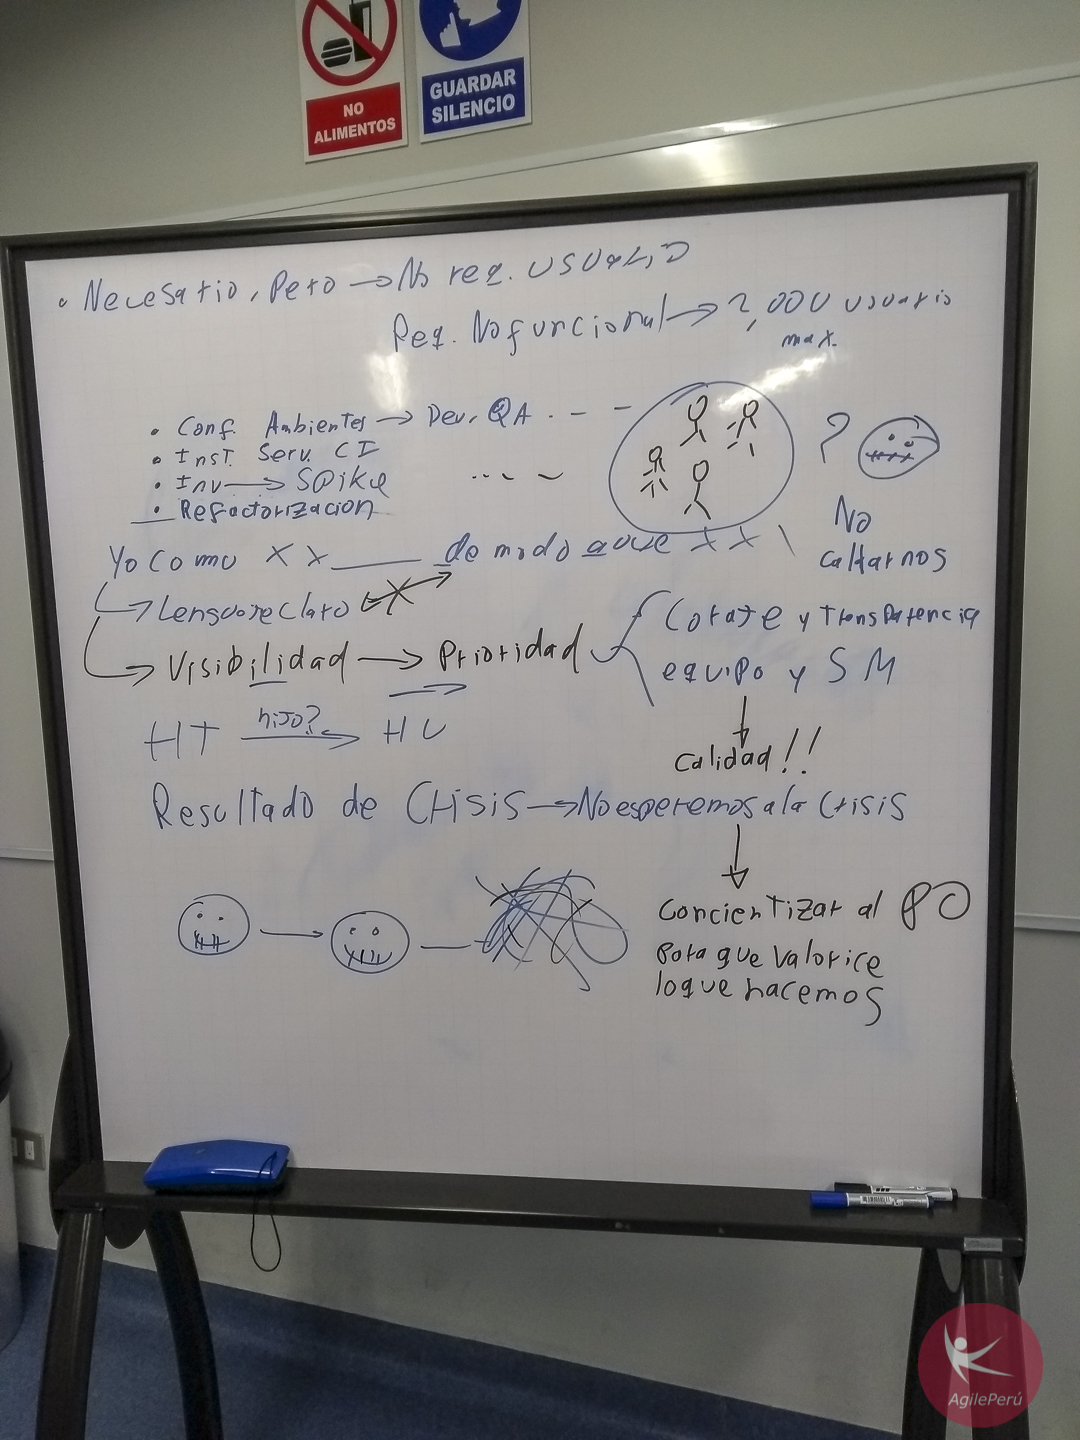 NO
ALIMENTOS
GUARDAR
SILENCIO
• Necesario, Pero → No req. USUARIO
Req. No funcional → 2,000 usuario
max.
• Conf. Ambientes → Dev, QA . - -
• Inst. Serv. CI
• Inv → Spike ... - ~
• Refactorización
?
No
callarnos
Yo como XX ____ de modo a que XX
Lenguaje claro
Visibilidad → Prioridad
Coraje y Transparencia
equipo y SM
HT hijo? → HU
Calidad!!
Resultado de Crisis → No esperemos a la Crisis
Concientizar al PO
para que valorice
lo que hacemos
AgilePerú